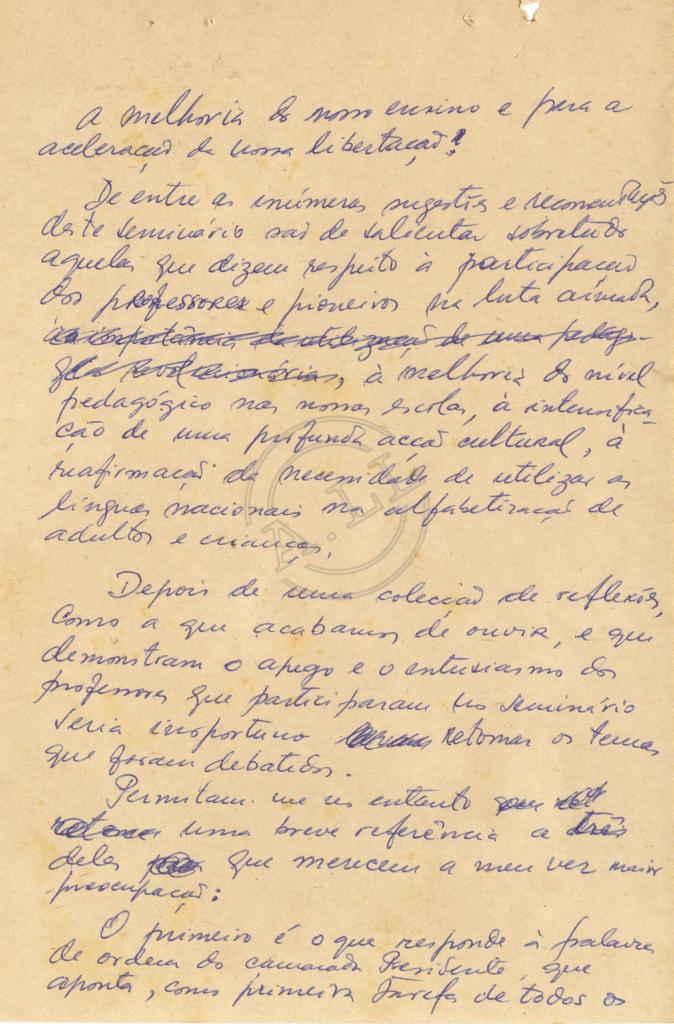 A melhoria do nosso ensino e para a
aceleração da nossa libertação!
De entre as inúmeras sugestões e recomendações
deste seminário são de salientar sobretudo
aquelas que dizem respeito à participação
dos professores e pioneiros na luta armada,
à importância da utilização de uma pedago-
gia revolucionária, à melhoria do nível
pedagógico nas nossas escolas, à intensifica-
ção de uma profunda acção cultural, à
reafirmação da necessidade de utilizar as
línguas nacionais na alfabetização de
adultos e crianças.
Depois de uma colecção de reflexões,
como a que acabamos de ouvir, e que
demonstram o apego e o entusiasmo dos
professores que participaram no seminário
seria inoportuno retomar os temas
que foram debatidos.
Permitam-me no entanto que
uma breve referência a três
deles que merecem a meu ver maior
preocupação:
O primeiro é o que responde à palavra
de ordem do camarada Presidente, que
aponta, como primeira tarefa de todos os
A.L.H.